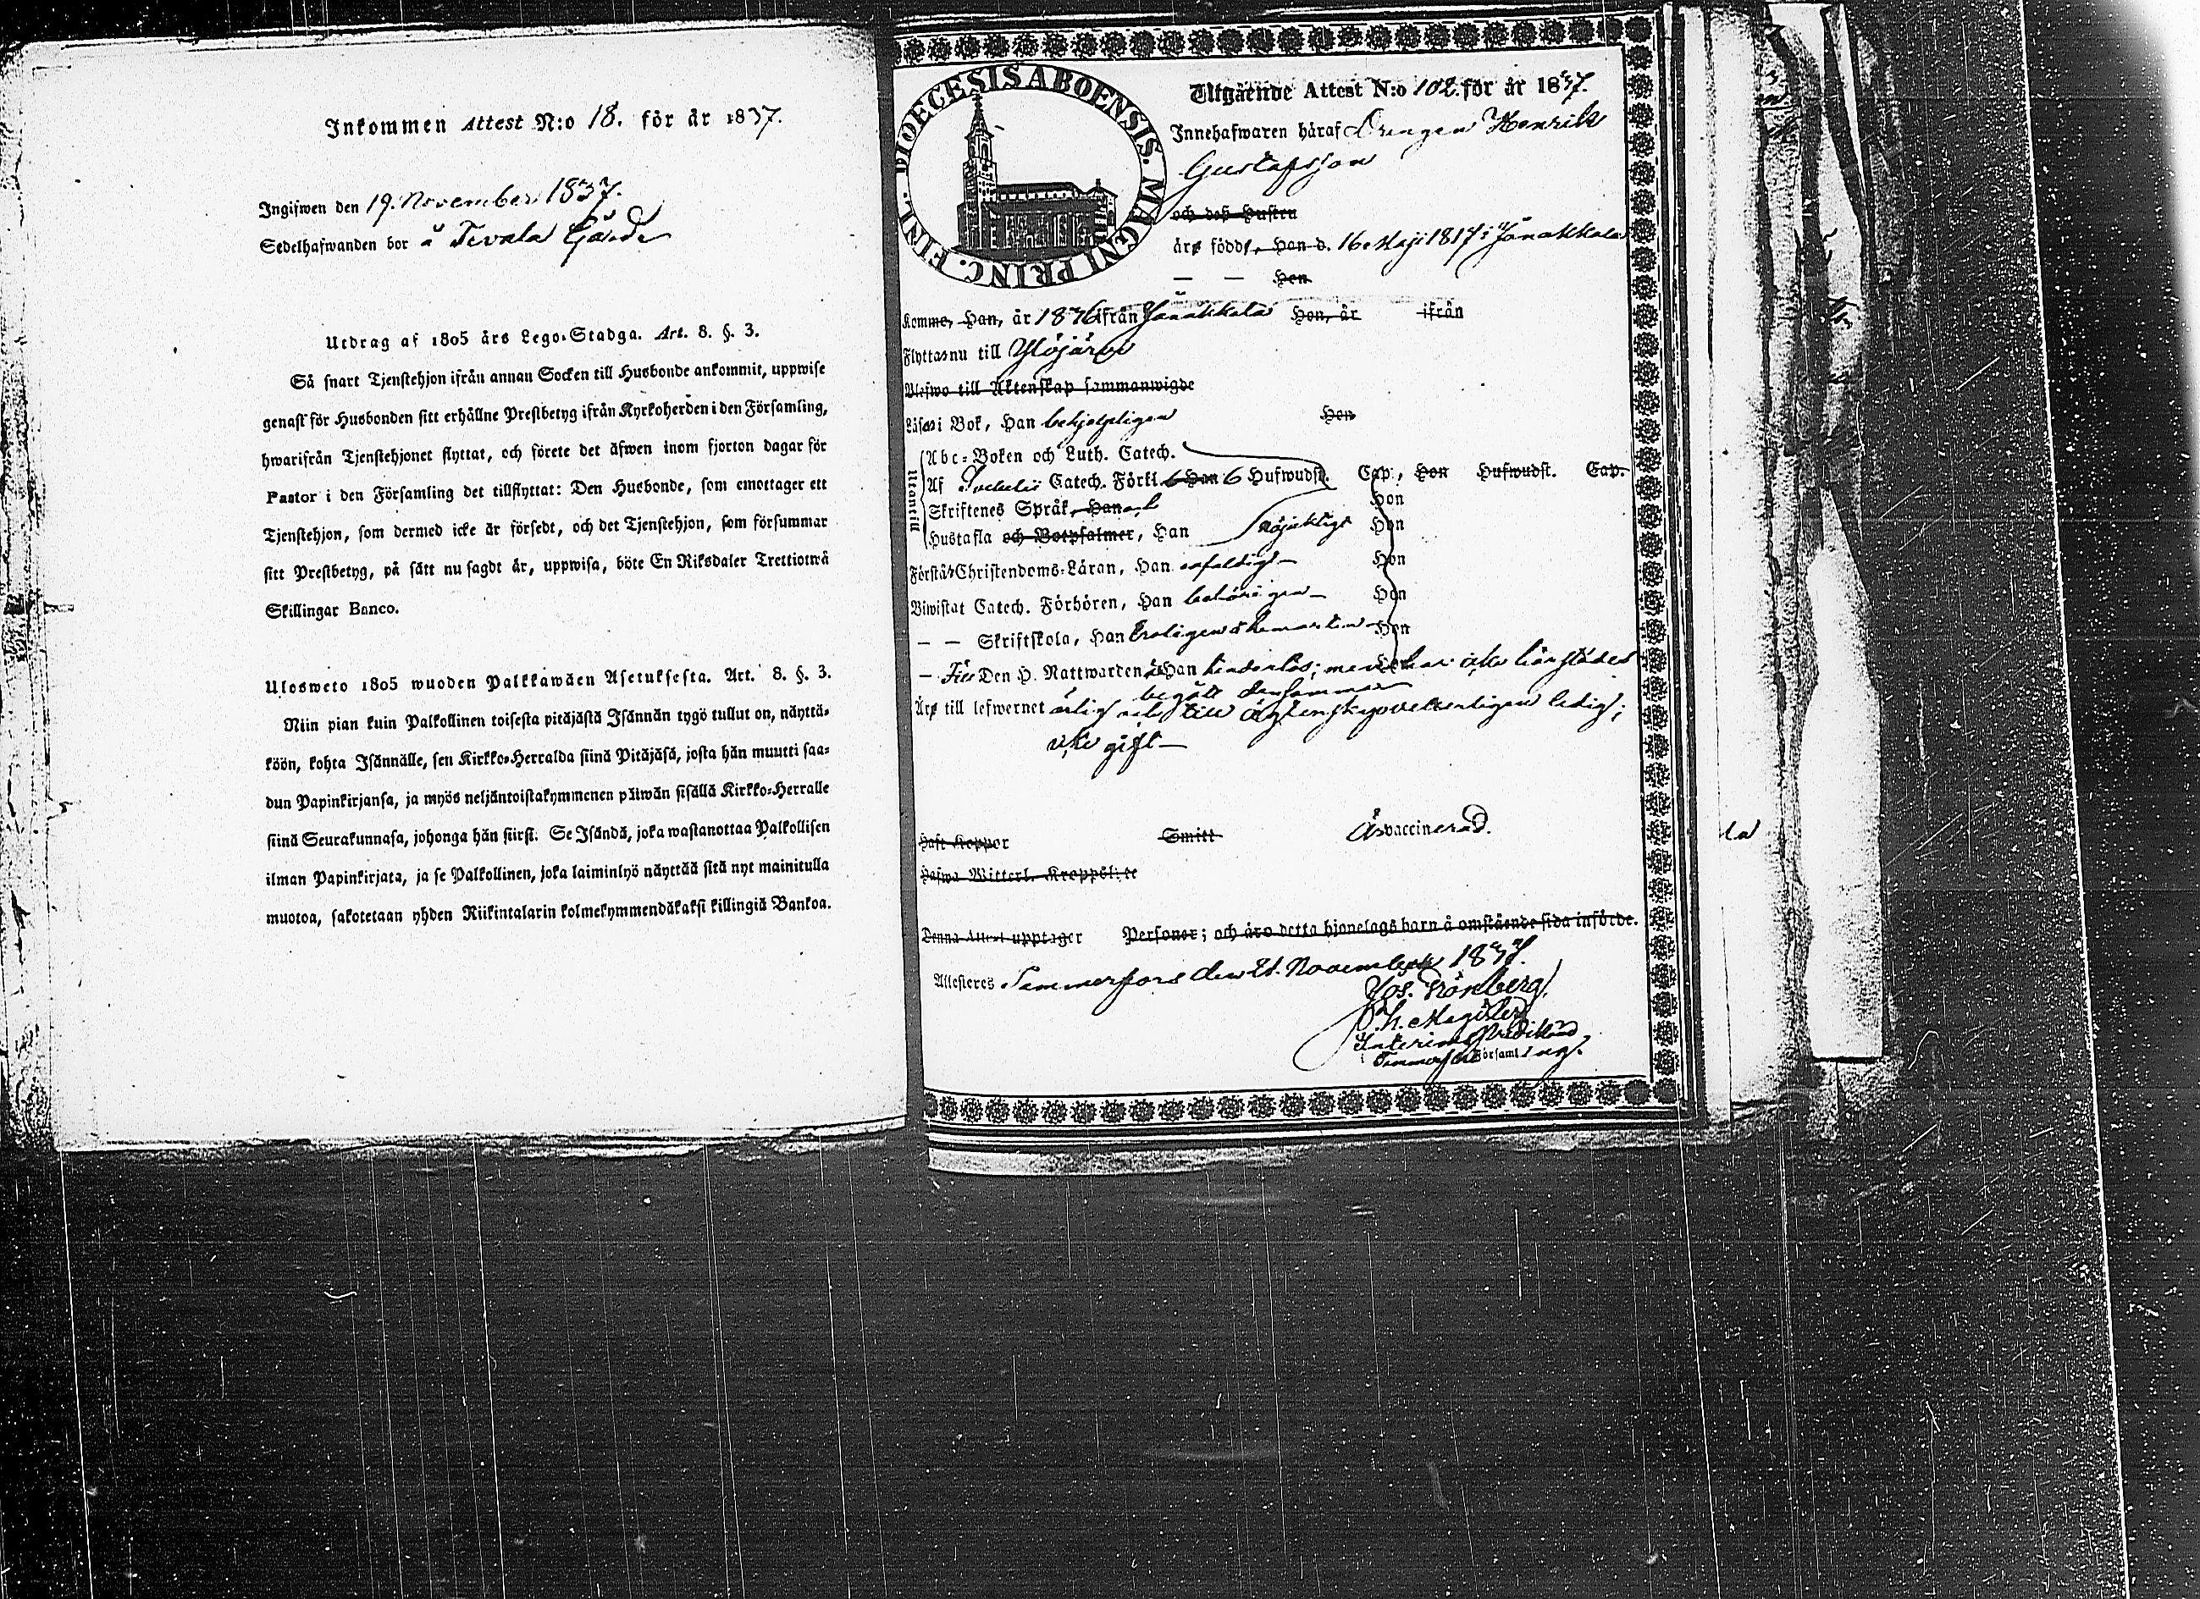 Inkommen Attest N:o 18. för år 1837.
Ingifwen den 19. November 1837.
Sedelhafwanden bor å Tevala Gård
Utdrag af 1805 års Lego-Stadga. Art. 8. §. 3.
Så snart Tjenstehjon ifrån annan Socken till Husbonde ankommit, uppwise
genast för Husbonden sitt erhållne Prestbetyg ifrån Kyrkoherden i den Församling,
hwarifrån Tjenstehjonet flyttat, och förete det äfwen inom fjorton dagar för
Pastor i den Församling det tillflyttat: Den Husbonde, som emottager ett
Tjenstehjon, som dermed icke är försedt, och det Tjenstehjon, som försummar
sitt Prestbetyg, på sätt nu sagdt är, uppwisa, böte En Riksdaler Trettiotwå
Skillingar Banco.
Ulosweto 1805 wuoden Palkkawäen Asetuksesta. Art. 8. §. 3.
Niin pian kuin Palkollinen toisesta pitäjästä Isännän tygö tullut on, näyttä-
köön, kohta Isännälle, sen Kirkko-Herralda siinä Pitäjäsä, josta hän muutti saa-
dun Papinkirjansa, ja myös neljäntoistakymmenen päiwän sisällä Kirkko-Herralle
siinä Seurakunnasa, johonga hän siirsi. Se Isändä, joka wastanottaa Palkollisen
ilman Papinkirjata, ja se Palkollinen, joka laiminlyö näyttää sitä nyt mainitulla
muotoa, sakotetaan yhden Riikintalarin kolmekymmendäkaksi killingiä Bankoa.
DIOECESIS ABOENSIS. MAGNI PRINC. FINL.
Utgående Attest N:o 102 för år 1837.
Innehafwaren häraf Drengen Henrik
Gustafsson
och deß Hustru
äro födde, Han d. 16 Maji 1817 i Janakkala
— — Hon
Komme, Han, år 1836 ifrån Janakkala Hon, år ifrån
Flyttas nu till Ylöjärvi
Blefwo till Äktenskap sammanwigde
Läsa i Bok, Han behjelpligen Hon
Utantill
Abc-Boken och Luth. Catech.
Af Catech. Förkl. Han 6 Hufwudst. Cap., Hon Hufwudst. Cap.
Skriftenes Språk, Han Hon
Hustafla och Botpsalmer, Han nöjaktigt Hon
Förstå Christendoms-Läran, Han enfaldigt — Hon
Biwistat Catech. Förhören, Han behörigen — Hon
— — Skriftskola, Han Hon
— Till Den H. Nattwarden är Han hinderlös; men har icke härstädes
begått densamma
Äro till lefwernet ärlig och till ägtenskap veterligen ledig;
icke gift —
Haft Koppor Smitt Är vaccinerad.
Hafwa Witterl. Kroppslyte
Denna Attest upptager Personer; och äro detta hjonelags barn å omstående sida införde.
Attesteres Tammerfors den 21. November 1837.
Jos. Grönberg.
Ph. Magister
Interims Predikant
i Tammerfors Församling.